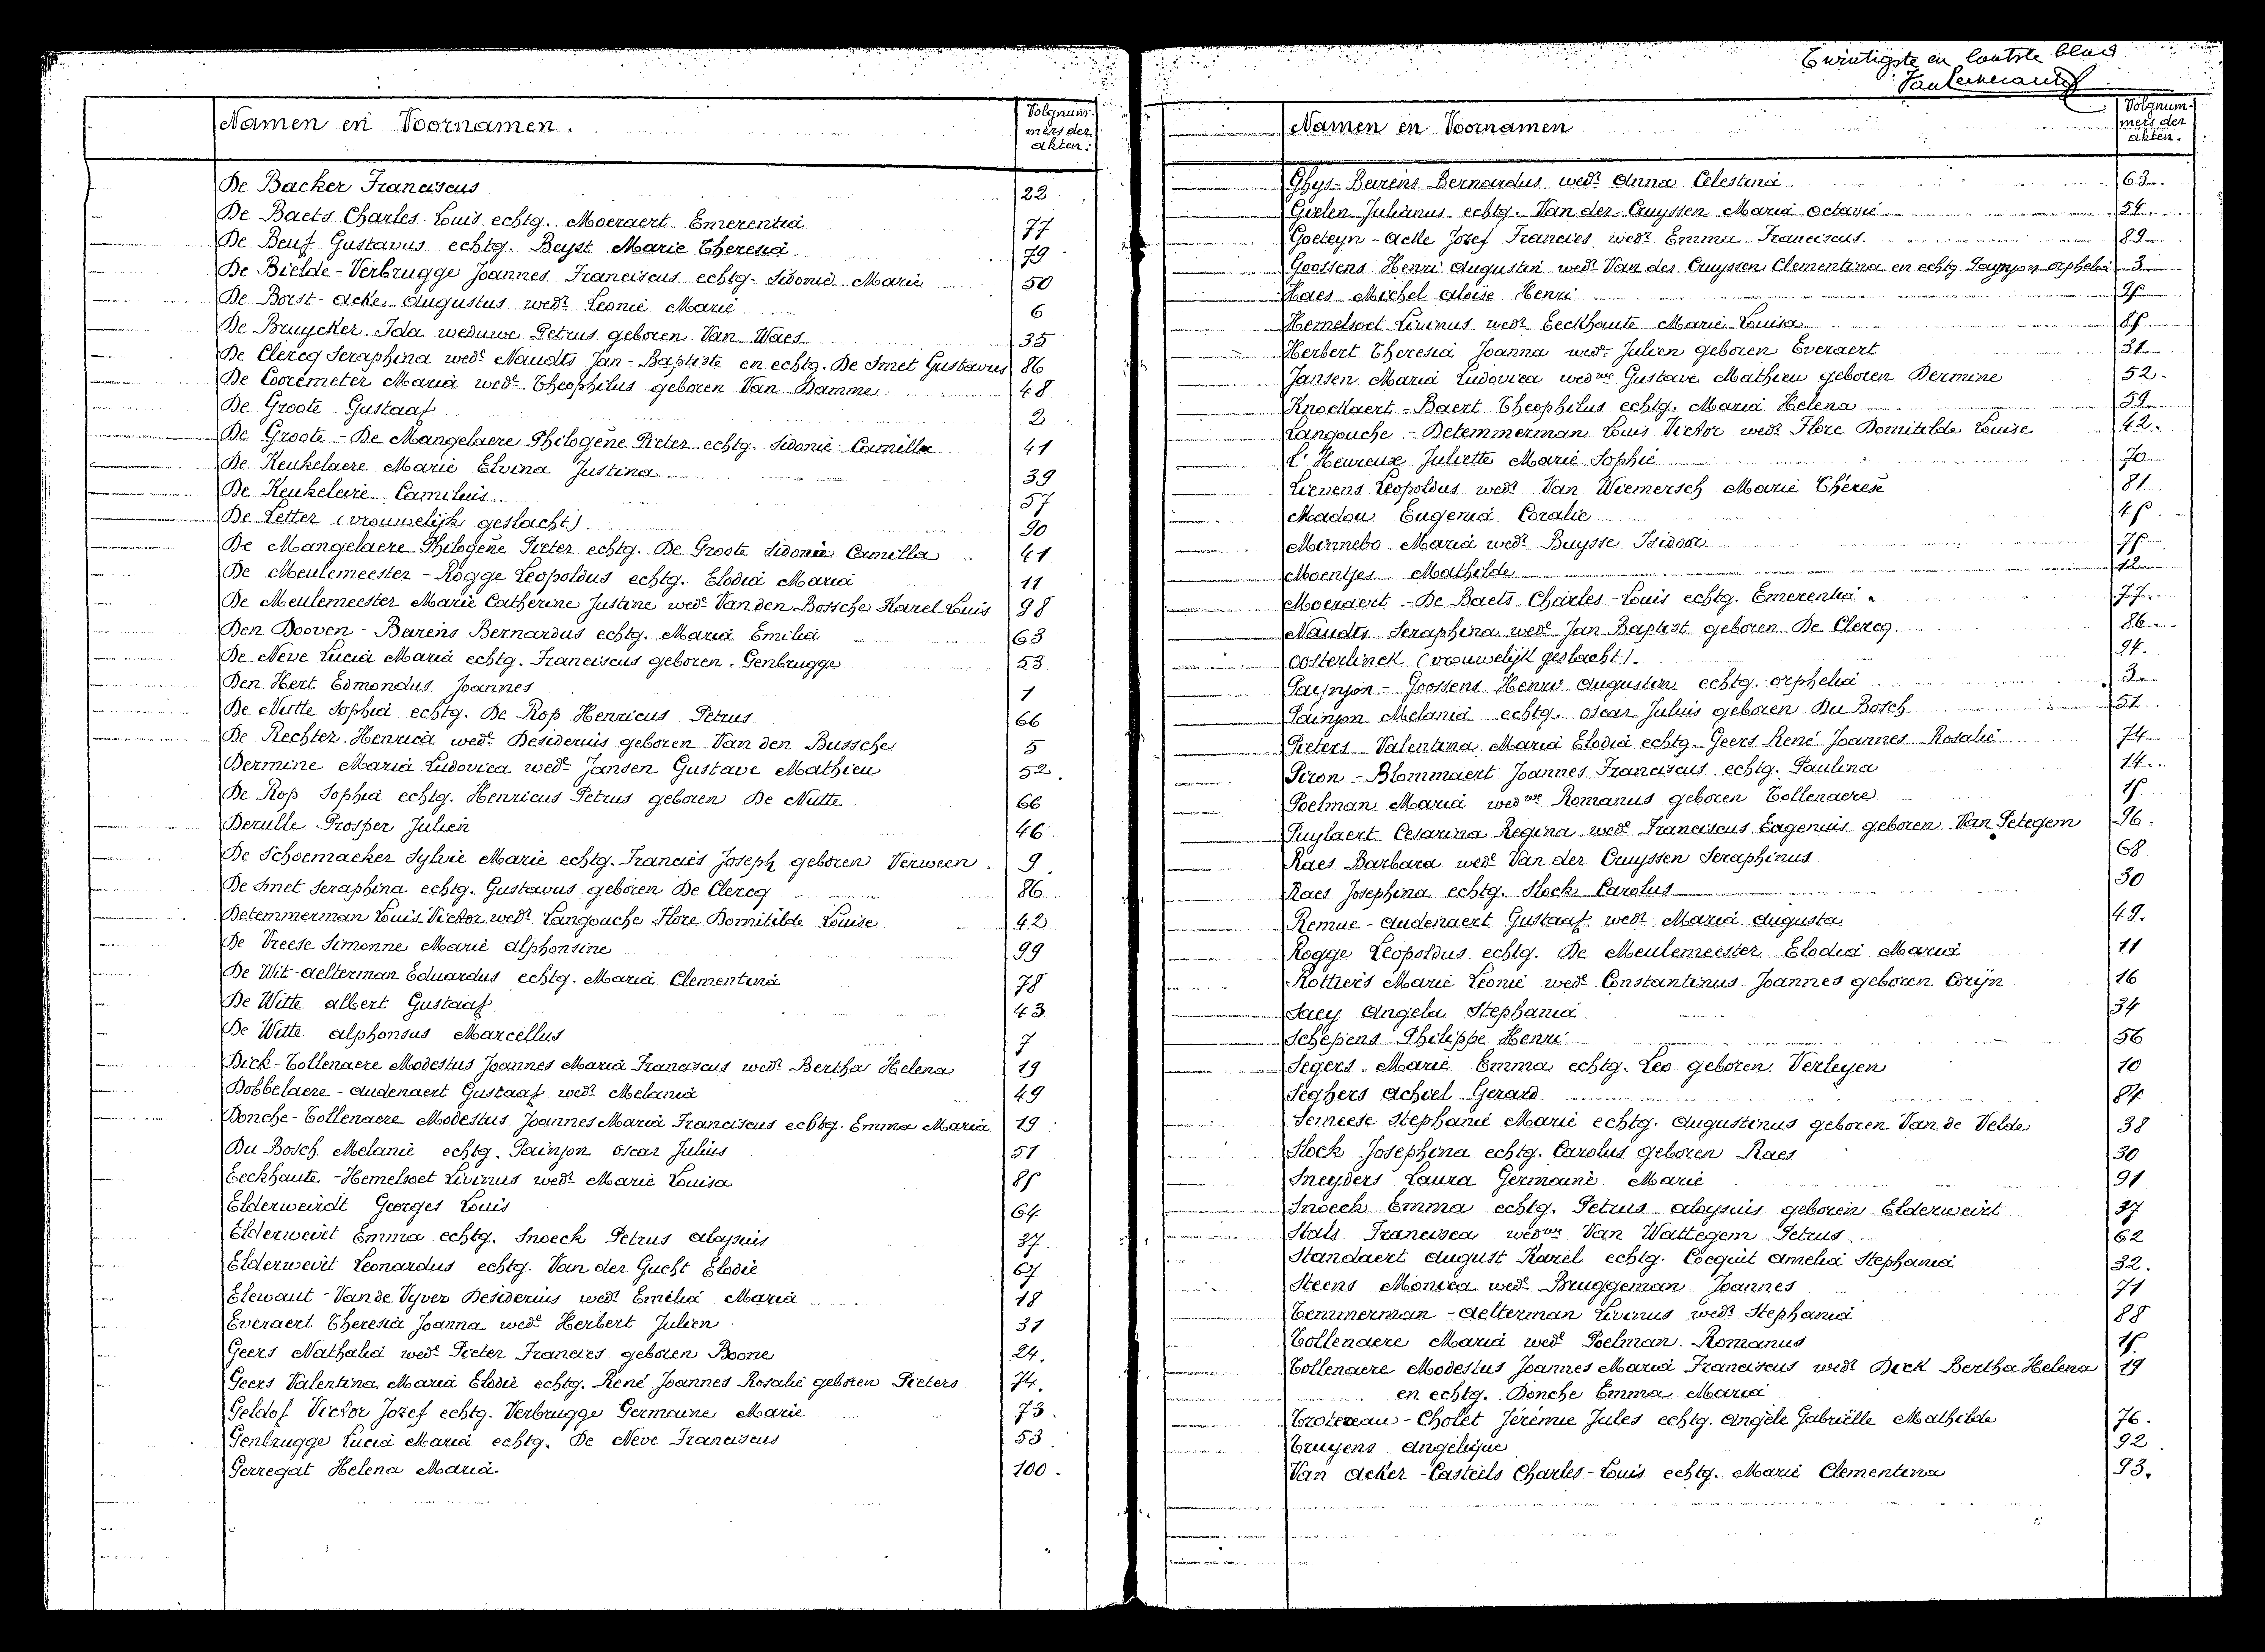 Namen en Voornamen.
Volgnum-
mers der
akten.
De Backer Franciscus 22
De Baets Charles-Louis echtg. Moeraert Emerentia 77
De Beuf Gustavus echtg. Beyst Marie Theresia 79
De Bielde-Verbrugge Joannes Franciscus echtg. Sidonie Marie 50
De Borst-Acke Augustus wedr Leonie Marie 6
De Bruycker Ida weduwe Petrus geboren Van Waes 35
De Clercq Seraphina wede Naudts Jan-Baptiste en echtg. De Smet Gustavus 86
De Cooremeter Maria wede Theophilus geboren Van Damme 48
De Groote Gustaaf 2
De Groote-De Mangelaere Philogène Pieter echtg. Sidonie Camilla 41
De Keukelaere Marie Elvina Justina 39
De Keukeleire Camilius 57
De Letter (vrouwelijk geslacht) 90
De Mangelaere Philogène Pieter echtg. De Groote Sidonie Camilla 41
De Meulemeester-Rogge Leopoldus echtg. Elodia Maria 11
De Meulemeester Marie Catherine Justine wede Van den Bossche Karel Louis 98
Den Dooven-Barens Bernardus echtg. Maria Emilia 63
De Neve Lucia Maria echtg. Franciscus geboren Genbrugge 53
Den Hert Edmondus Joannes 1
De Nutte Sophia echtg. De Rop Henricus Petrus 66
De Rechter Henrica wede Desiderius geboren Van den Bussche 5
Dermine Maria Ludovica wede Jansen Gustave Mathieu 52.
De Rop Sophia echtg. Henricus Petrus geboren De Nutte 66
Derulle Prosper Julien 46
De Schoemaeker Sylvie Marie echtg. Francies Joseph geboren Verween. 9
De Smet Seraphina echtg. Gustavus geboren De Clercq 86
Detemmerman Louis Victor wedr Langouche Flore Domitilde Louise 42
De Vreese Simonne Marie Alphonsine 99
De Wit-Aelterman Eduardus echtg. Maria Clementina 78
De Witte Albert Gustaaf 43
De Witte Alphonsus Marcellus 7
Dick-Tollenaere Modestus Joannes Maria Franciscus wedr Bertha Helena 19
Dobbelaere-Audenaert Gustaaf wedr Melania 49
Donche-Tollenaere Modestus Joannes Maria Franciscus echtg. Emma Maria 19
Du Bosch Melanie echtg. Painjon Oscar Julius 51
Eeckhaute-Hemelsoet Livinus wedr Marie Louisa 85
Elderweirdt Georges Louis 64
Elderweirt Emma echtg. Snoeck Petrus Aloysius 37
Elderweirt Leonardus echtg. Van der Gucht Elodie 67
Elewaut-Van de Vyver Desiderius wedr Emilia Maria 18
Everaert Theresia Joanna wede Herbert Julien 31
Geers Nathalia wede Pieter Francies geboren Boone 24.
Geers Valentina Maria Elodie echtg. René Joannes Rosalie geboren Pieters 74.
Geldof Victor Jozef echtg. Verbrugge Germaine Marie 73.
Genbrugge Lucia Maria echtg. De Neve Franciscus 53
Gerregat Helena Maria. 100.
Twintigste en laatste blad
Namen en Voornamen
Volgnum-
mers der
akten.
Ghys-Barens Bernardus wedr Anna Celestina 63
Gielen Julianus echtg. Van der Cruyssen Maria Octavie 54
Goeteyn-Acke Jozef Francies wedr Emma Franciscus 89
Goossens Henri Augustin wedr Van der Cruyssen Clementina en echtg. Paynjon Orphelia 3
Haes Michel Aloïse Henri 95
Hemelsoet Livinus wedr Eeckhaute Marie Louisa 85
Herbert Theresia Joanna wede Julien geboren Everaert 31
Jansen Maria Ludovica wedwe Gustave Mathieu geboren Dermine 52.
Knockaert-Baert Theophilus echtg. Maria Helena 59
Langouche-Detemmerman Louis Victor wedr Flore Domitilde Louise 42.
L'Heureux Juliette Marie Sophie 70
Lievens Leopoldus wedr Van Wiemersch Marie Thérèse 81
Madou Eugenia Coralie 45
Minnebo Maria wede Buysse Isidoor 75
Moentjes Mathilde 12
Moeraert-De Baets Charles-Louis echtg. Emerentia. 77.
Naudts Seraphina wede Jan Baptist geboren De Clercq 86
Oosterlinck (vrouwelijk geslacht). 94.
Paynjon-Goossens Henri Augustin echtg. Orphelia 3
Painjon Melania echtg. Oscar Julius geboren Du Bosch 51
Pieters Valentina Maria Elodia echtg. Geers René Joannes Rosalie 74
Piron-Blommaert Joannes Franciscus echtg. Paulina 14
Poelman Maria wedwe Romanus geboren Tollenaere 15
Puylaert Cesarina Regina wede Franciscus Eugenius geboren Van Petegem 96.
Raes Barbara wede Van der Cruyssen Seraphinus 68
Raes Josephina echtg. Slock Carolus 30
Remue-Audenaert Gustaaf wedr Maria Augusta 49.
Rogge Leopoldus echtg. De Meulemeester Elodia Maria 11
Rottiers Marie Leonie wede Constantinus Joannes geboren Corijn 16
Saey Angela Stephania 34
Schepens Philippe Henri 56
Segers Marie Emma echtg. Leo geboren Verleyen 10
Seghers Achiel Gerard 84
Serneese Stephanie Marie echtg. Augustinus geboren Van de Velde 38
Slock Josephina echtg. Carolus geboren Raes 30
Sneyders Laura Germaine Marie 91
Snoeck Emma echtg. Petrus Aloysius geboren Elderweirt 37
Stals Francisca wedwe Van Wattegem Petrus 62
Standaert August Karel echtg. Cocquit Amelia Stephania 32.
Steens Monica wede Bruggeman Joannes 71
Temmerman-Aelterman Livinus wedr Stephania 88
Tollenaere Maria wede Poelman Romanus 15
Tollenaere Modestus Joannes Maria Franciscus wedr Dick Bertha Helena 19
en echtg. Donche Emma Maria
Trotereau-Cholet Jérémie Jules echtg. Angèle Gabriëlle Mathilde 76.
Truyens Angelique 92
Van Acker-Casteels Charles-Louis echtg. Marie Clementina 93.